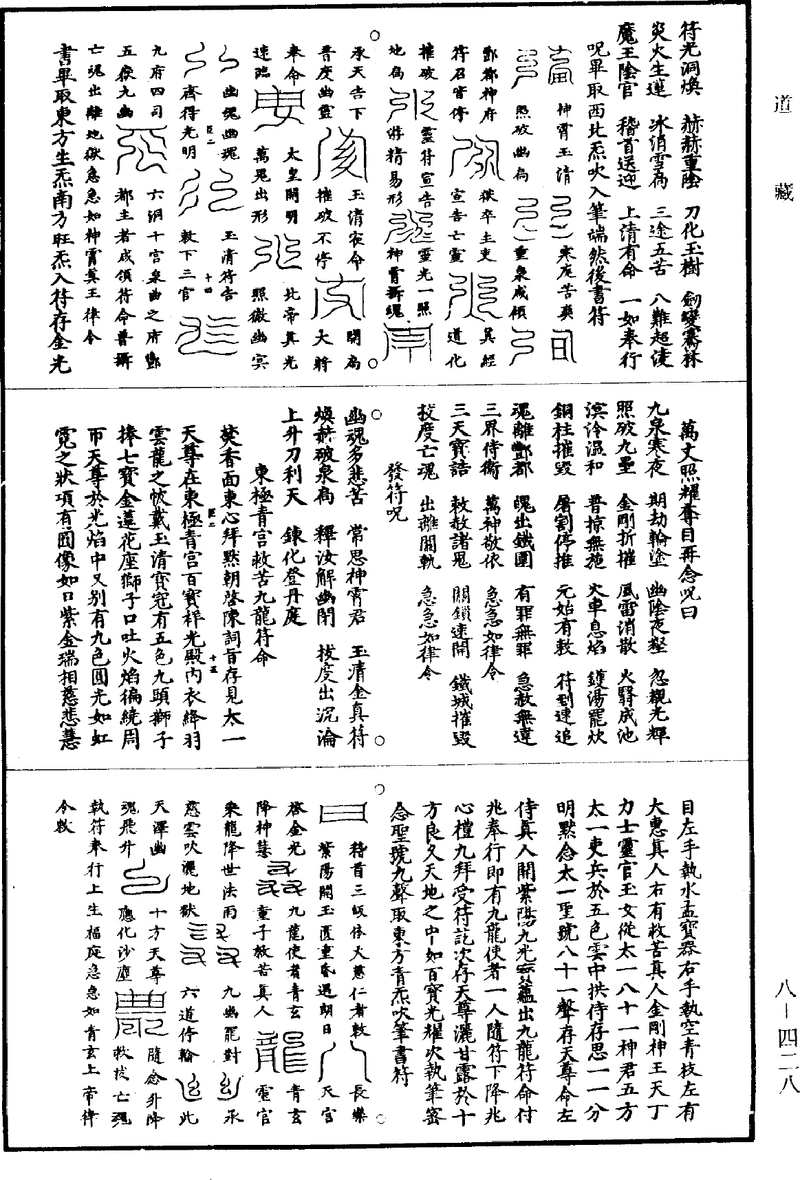 道藏
符光洞煥　赫赫重陰　刀化玉樹　劍變騫林
炎火生蓮　冰消雪為　三途五苦　八難超淩
魔王陰官　稽首送迎　上清有命　一如奉行
呪畢取西北炁吹入筆端然後書符
神霄玉清　寒庭苦爽
照破幽扃　重泉咸傾
酆都神府　獄卒主吏　其經
符召皆停　宣告亡靈　道化
摧破　靈符宣告　靈光一照
地扃　游精易形　神霄攝魂
承天告下　玉清哀命　開扃
普度幽靈　摧破不停　大將
奉命　太皇開明　北帝真光
速臨　萬鬼出形　照徹幽冥
幽魂幽魂　玉清符告
齊得光明　敕下三官
九府四司　六洞十宮泉曲之府酆
五嶽九幽　都主者咸領符命普攝
亡魂出離地獄急急如神霄真王律令
書畢取東方生炁南方旺炁入符存金光
萬丈照耀奪目再念呪曰
九泉寒夜　期劫輪塗　幽陰夜壑　忽覩光輝
照破九壘　金剛折摧　風雷消散　火翳成池
溟泠溫和　普掠無拖　火車息焰　鑊湯罷炊
銅柱摧毀　屠割停推　元始有敕　符到速追
魂離酆都　魄出鐵圍　有罪無罪　急赦無違
三界侍衛　萬神敬依　急急如律令
三天寶誥　敕赦諸鬼　關鎖速開　鐵城摧毀
拔度亡魂　出離開軌　急急如律令
發符呪
幽魂多悲苦　常思神霄君　玉清金真符
煥赫破泉扃　釋汝解幽閉　拔度出沉淪
上升刀利天　鍊化登丹庭
東極青宮救苦九龍符命
焚香面東心拜默朝啓陳詞旨存見太一
天尊在東極青宮百寶祥光殿內衣絳羽
雲龍之帔戴玉清寶冠有五色九頭獅子
捧七寶金蓮花座獅子口吐火焰徧繞周
帀天尊於光焰中又別有九色圓光如虹
霓之狀項有圓像如口紫金瑞相慈悲慧
目左手執水盂寶器右手執空青枝左有
大惠真人右有救苦真人金剛神王天丁
力士靈官玉女從太一八十一神君五方
太一吏兵於五色雲中拱侍存思一一分
明默念太一聖號八十一聲存天尊命左
侍真人開紫陽九光雲蘊出九龍符命付
兆奉行即有九龍使者一人隨符下降兆
心禮九拜受符訖次存天尊灑甘露於十
方良久天地之中如百寶光耀次執筆密
念聖號九聲取東方青炁吹筆書符
稽首三皈依大慈仁者敕　長樂
紫陽開玉匱重昏遇朝日　天宮
啓金光　九龍使者青玄　青玄
降神慧　童子救苦真人　靈官
乘龍降世法雨　九幽罷對　承
慈雲吹灑地獄　六道停輪　此
天澤幽　十方天尊　隨念升降
魂飛升　應化沙塵　救拔亡魂
執符奉行上生福庭急急如青玄上帝律
令敕
八－四二八